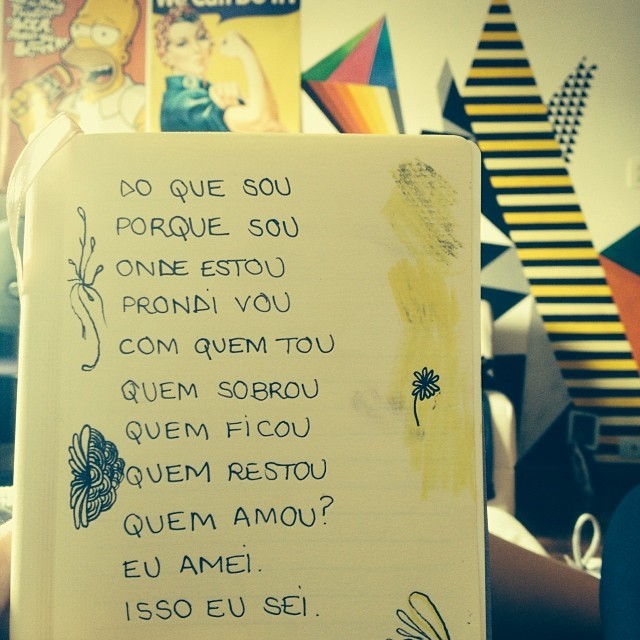 We Can Do It!
DO QUE SOU
PORQUE SOU
ONDE ESTOU
PRONDI VOU
COM QUEM TOU
QUEM SOBROU
QUEM FICOU
QUEM RESTOU
QUEM AMOU?
EU AMEI.
ISSO EU SEI.